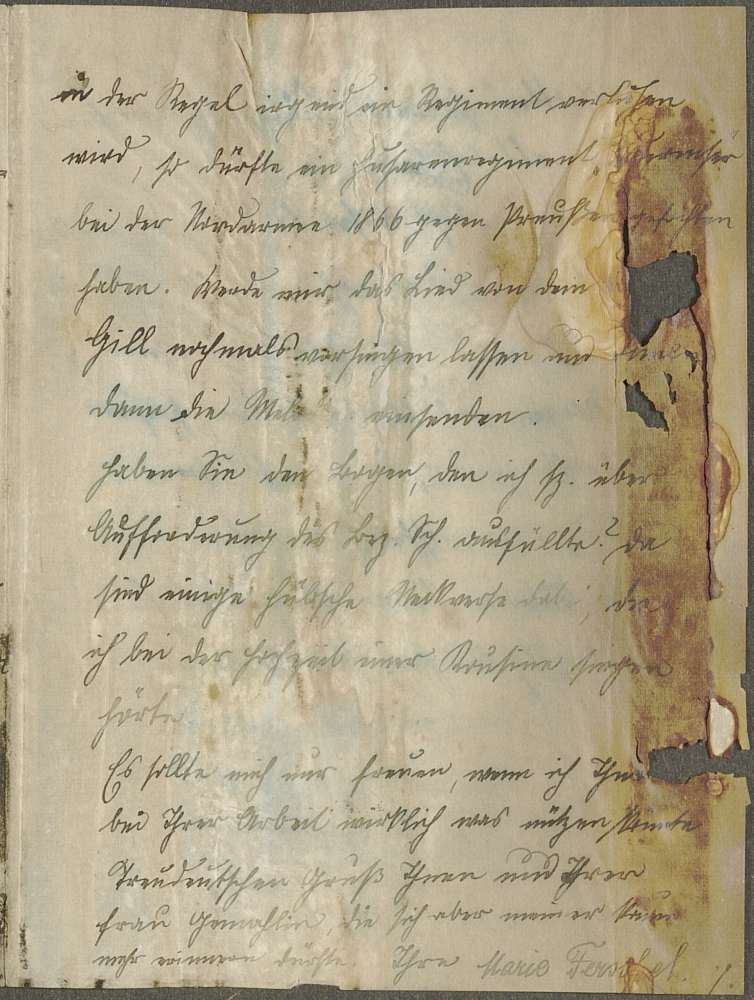 in der Regel irgend ein Regiment verliehen
wird, so dürfte ein Husarenregiment
bei der Nordarmee 1866 gegen Preußen gefochten
haben. Werde mir das Lied von dem
Gill nochmals vorsingen lassen und
dann die einsenden.
Haben Sie den Bogen, den ich sz. über
Aufforderung des Bez. Sch. ausfüllte? Da
sind einige hübsche Neckverse dabei, die
ich bei der Hochzeit einer Kousine singen
hörte
Es sollte mich nur freuen, wenn ich
bei Ihrer Arbeit wirklich was nützen könnte
Treudeutschen Gruß Ihnen und Ihrer
Frau Gemahlin, die sich aber meiner kaum
mehr erinnern dürfte. Ihre Marie